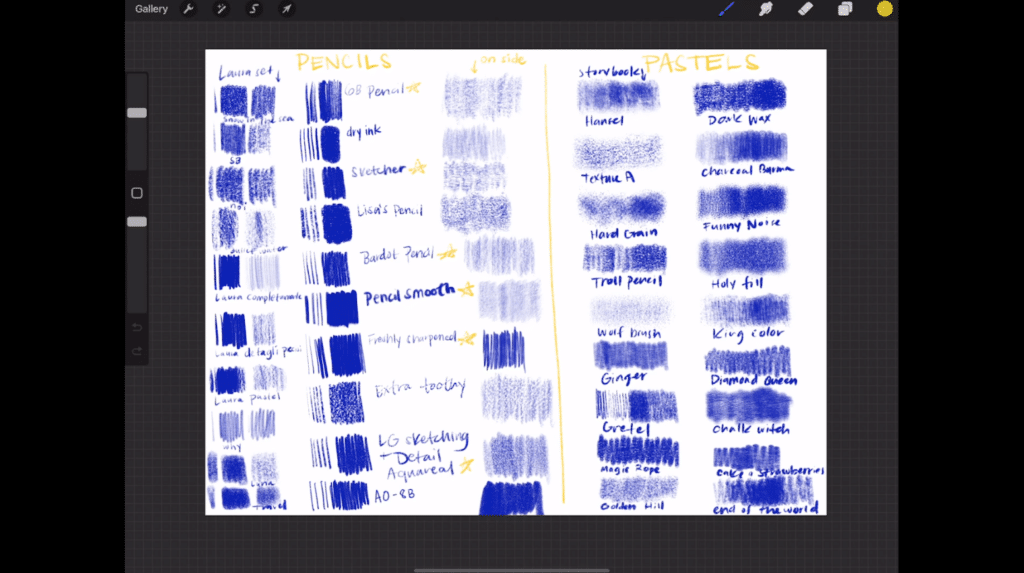 Gallery
PENCILS
Laura set
on side
6B Pencil
Snow in the sea
dry ink
SB
Sketcher
noi
Lisa's Pencil
Bardot Pencil
Laura completamente
Pencil smooth
Laura dettagli
Freshly sharpened
Laura pastel
Extra toothy
why
LG sketching
Detail
Aquareal
Luna
AO-8B
PASTELS
Storybook
Hansel
Donk Wax
Texture A
Charcoal Burma
Hard Grain
Funny Noise
Troll pencil
Holy fill
Wolf brush
King color
Ginger
Diamond Queen
Gretel
Chalk witch
Magic Rope
Cake & Strawberries
Golden Hill
end of the world